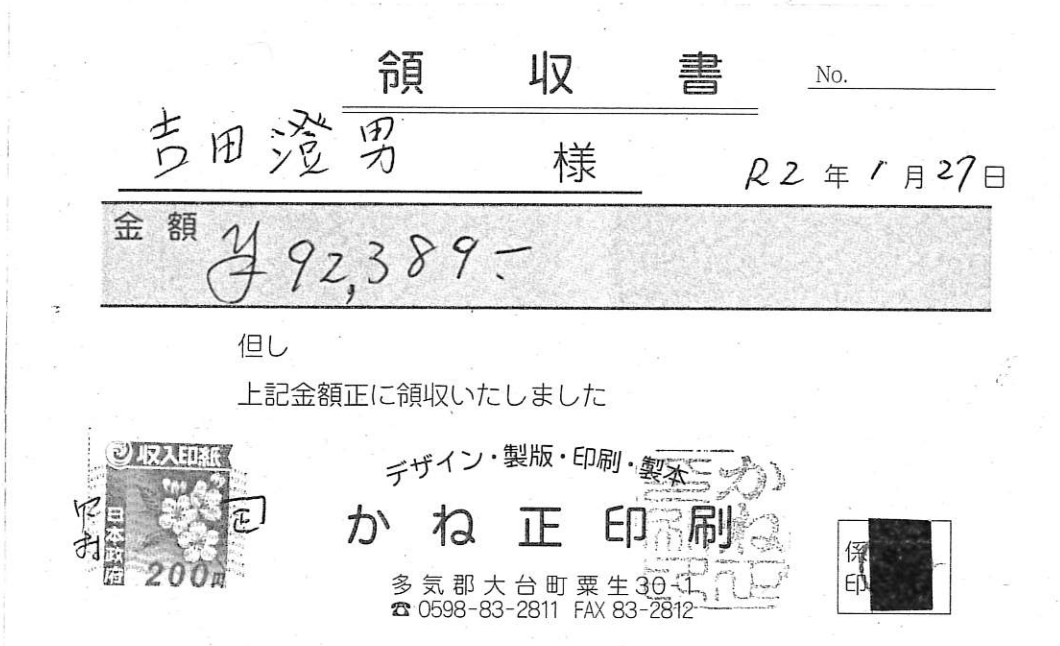 領収書
No.
吉田澄男 様
R2年1月27日
金額 ¥92,389.-
但し
上記金額正に領収いたしました
収入印紙
日本政府
200円
正
デザイン・製版・印刷・製本
かね正印刷
多気郡大台町粟生30-1
☎0598-83-2811 FAX 83-2812
係印